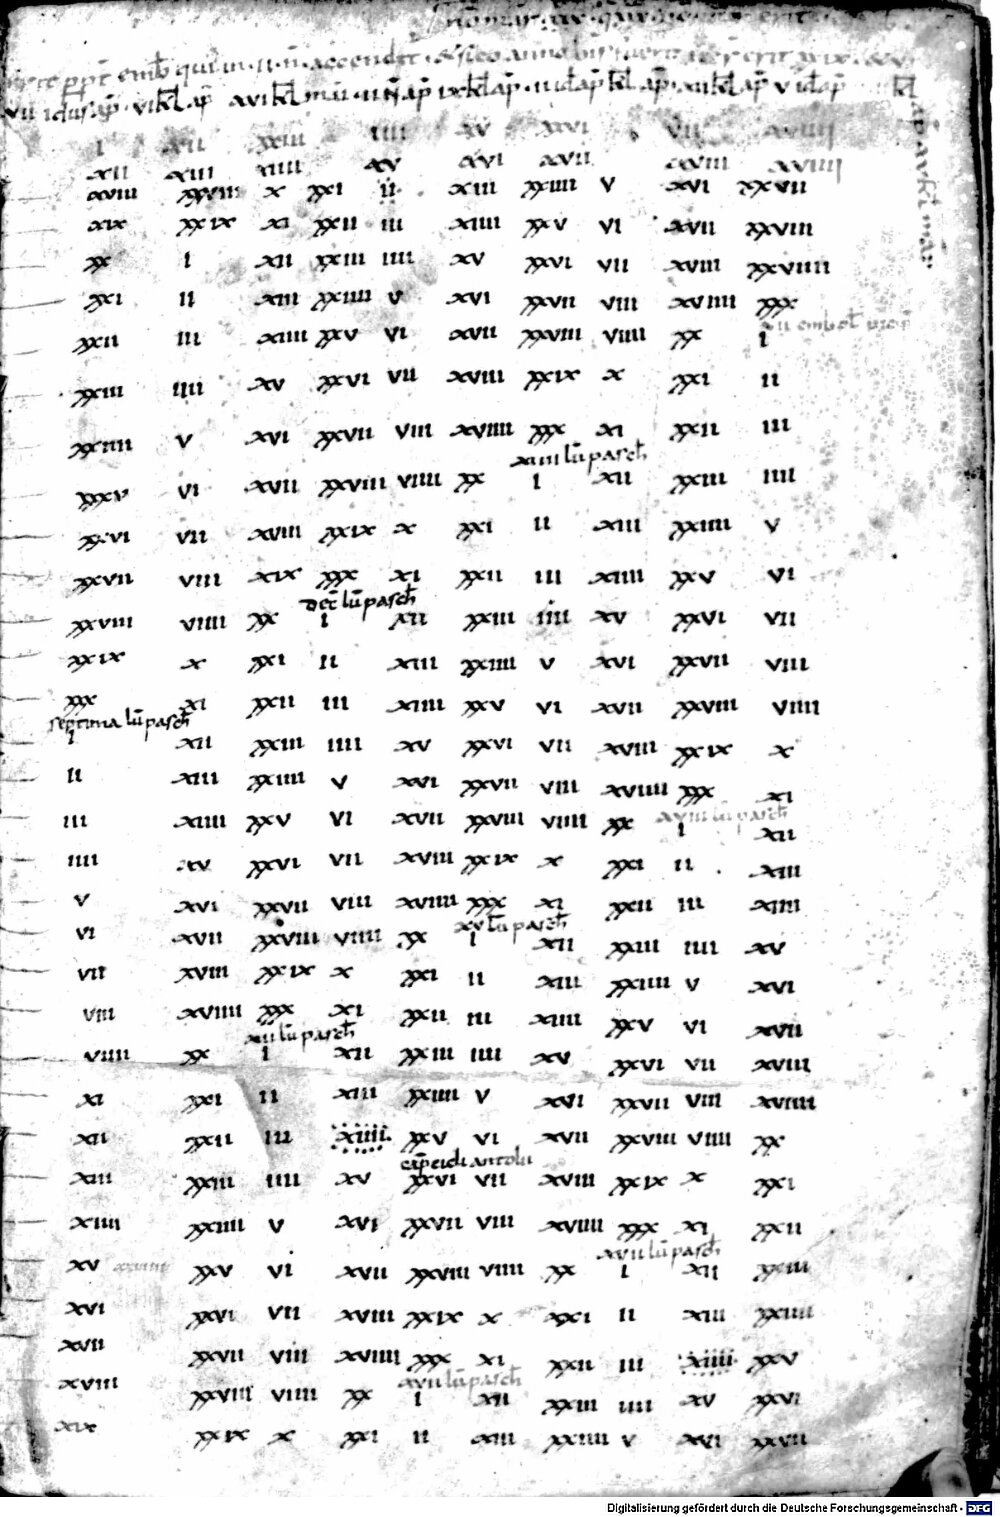 vii idus ap̄ · vi kl̄ ap̄ xvi kl̄ mai · ii N̄ ap̄ ix kl̄ ap̄ · ii id ap̄ kl̄ ap̄ · xii kl̄ ap̄ v id ap̄ kl̄
i xii xxiii iiii xv xxvi vii xviiii
xii xiii xiiii xv xvi xvii xxviii xxviiii
xviii xxviii x xxi ii xiii xxiiii v xvi xxvii
xix xxix xi xxii iii xiiii xxv vi xvii xxviii
xx i xii xxiii iiii xv xxvi vii xviii xxviiii
xxi ii xiii xxiiii v xvi xxvii viii xviiii xxx
xxii iii xiiii xxv vi xvii xxviii viiii xx i
xxiii iiii xv xxvi vii xviii xxix x xxi ii
xxiiii v xvi xxvii viii xviiii xxx xi xxii iii
xiiii lū pasch
xxxv vi xvii xxviii viiii xx i xii xxiii iiii
xxvi vii xviii xxix x xxi ii xiii xxiiii v
xxvii viii xix xxx xi xxii iii xiiii xxv vi
dec̄ lū pasch
xxviii viiii xx i xii xxiii iiii xv xxvi vii
xxix x xxi ii xiii xxiiii v xvi xxvii viii
xxx xi xxii iii xiiii xxv vi xvii xxviii viiii
septima lū pasch
i xii xxiii iiii xv xxvi vii xviii xxix x
ii xiii xxiiii v xvi xxvii viii xviiii xxx xi
xviii lū pasch
iii xiiii xxv vi xvii xxviii viiii xx i xii
iiii xv xxvi vii xviii xxix x xxi ii xiii
v xvi xxvii viii xviiii xxx xi xxii iii xiiii
xv lū pasch
vi xvii xxviii viiii xx i xii xxiii iiii xv
vii xviii xxix x xxi ii xiii xxiiii v xvi
viii xviiii xxx xi xxii iii xiiii xxv vi xvii
xii lū pasch
viiii xx i xii xxiii iiii xv xxvi vii xviii
xi xxi ii xiii xxiiii v xvi xxvii viii xviiii
xii xxii iii xiiii xxv vi xvii xxviii viiii xx
xiii xxiii iiii xv xxvi vii xviii xxix x xxi
xiiii xxiiii v xvi xxvii viii xviiii xxx xi xxii
xvii lū pasch
xv xxv vi xvii xxviii viiii xx i xii xxiii
xvi xxvi vii xviii xxix x xxi ii xiii xxiiii
xvii xxvii viii xviiii xxx xi xxii iii xiiii xxv
xvii lū pasch
xviii xxviii viiii xx i xii xxiii iiii xv xxvi
xix xxix x xxi ii xiii xxiiii v xvi xxvii
Digitalisierung gefördert durch die Deutsche Forschungsgemeinschaft - DFG